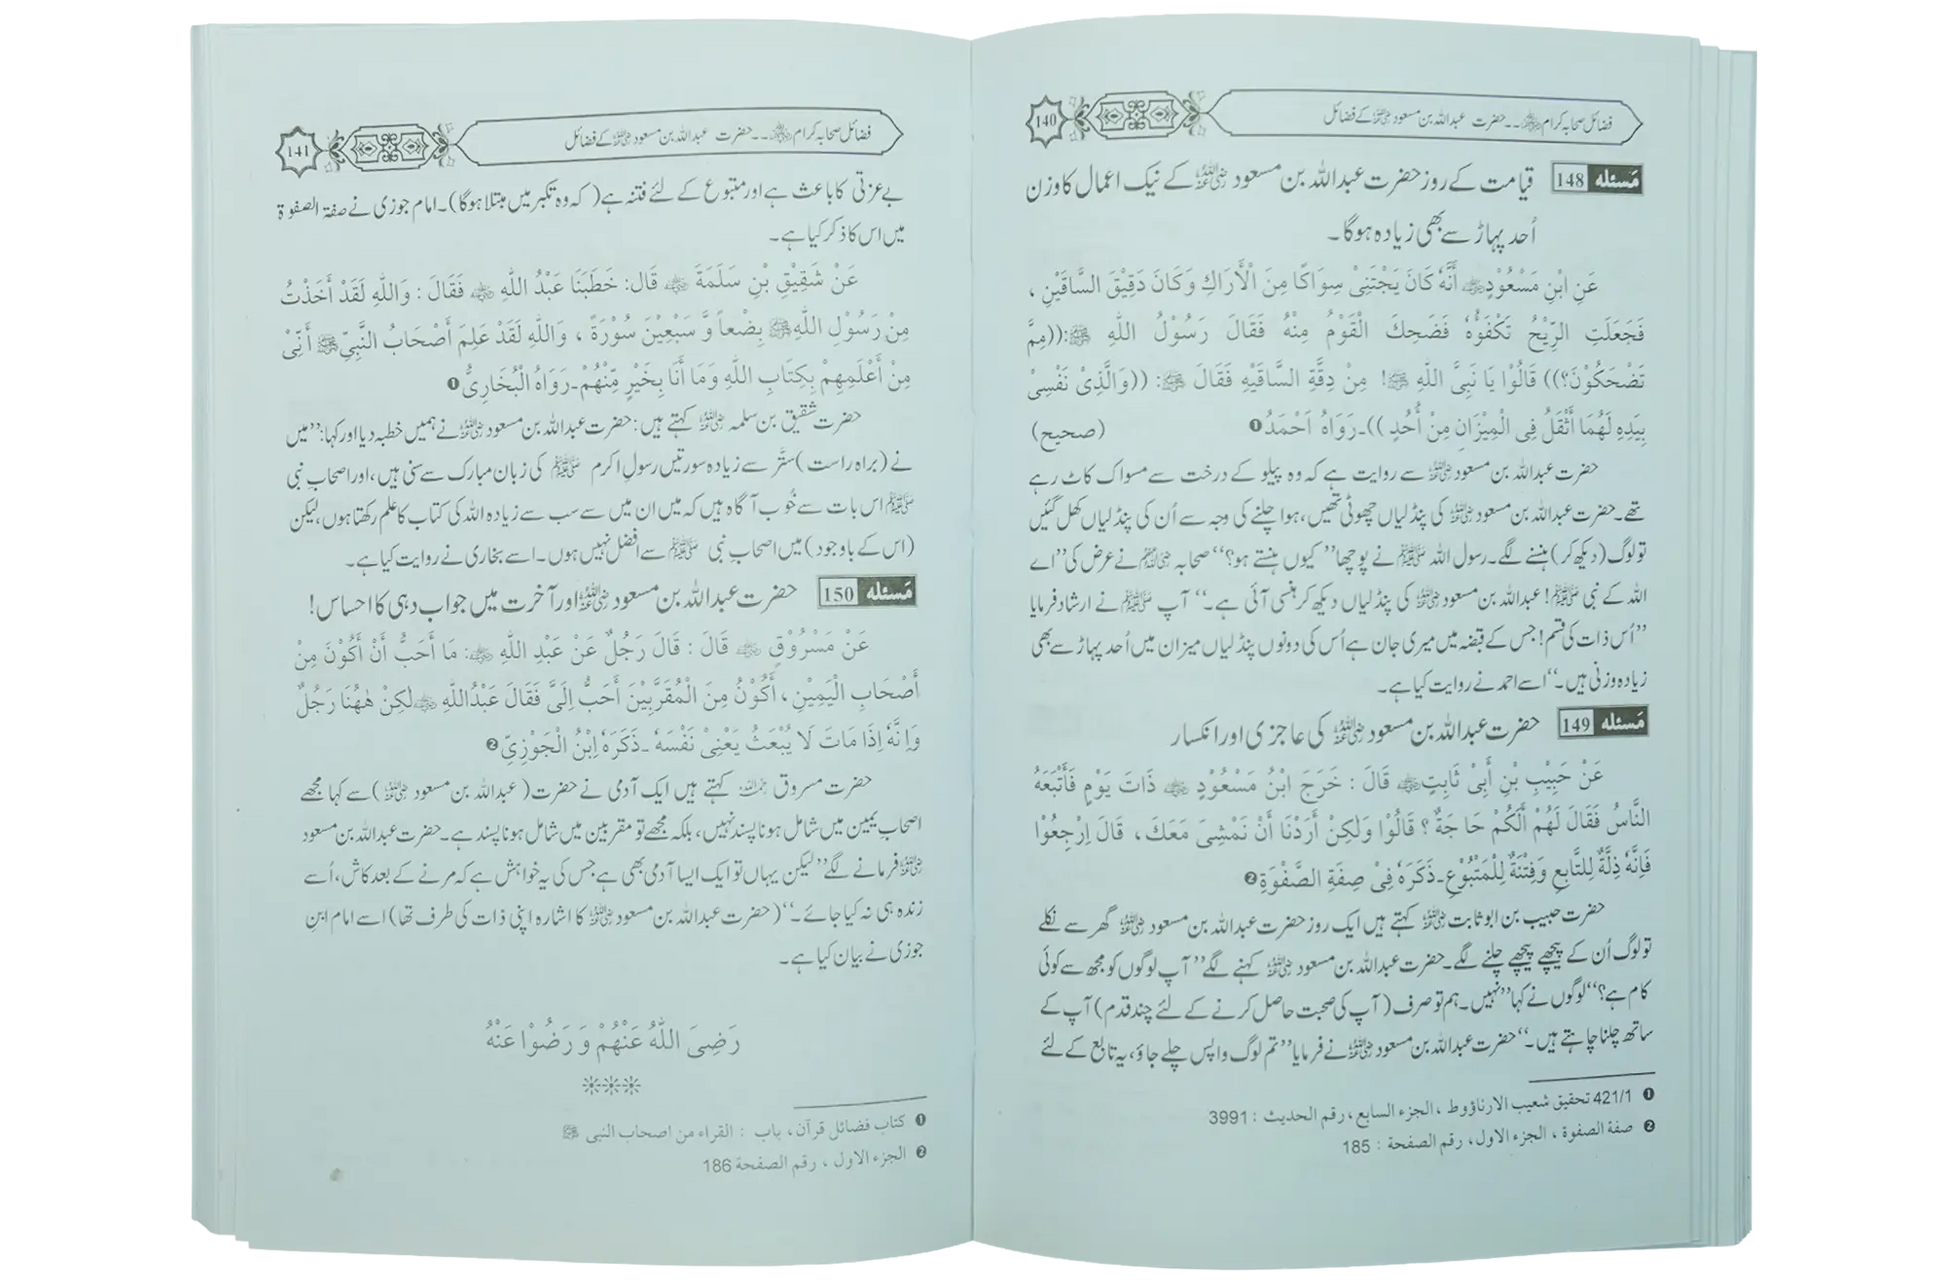 140 فضائل صحابہ کرام ﷢۔۔۔حضرت عبداللہ بن مسعود ﷜ کے فضائل
مَسئله 148 قیامت کے روز حضرت عبداللہ بن مسعود ﷜ کے نیک اعمال کا وزن
اُحد پہاڑ سے بھی زیادہ ہوگا۔
عَنِ ابْنِ مَسْعُوْدٍ ﷜ أَنَّهٗ كَانَ يَجْتَنِيْ سِوَاكًا مِنَ الْأَرَاكِ وَكَانَ دَقِيْقَ السَّاقَيْنِ ،
فَجَعَلَتِ الرِّيْحُ تَكْفَؤُهٗ فَضَحِكَ الْقَوْمُ مِنْهُ فَقَالَ رَسُوْلُ اللّٰهِ ﷺ :((مِمَّ
تَضْحَكُوْنَ؟)) قَالُوْا يَا نَبِيَّ اللّٰهِ ﷺ! مِنْ دِقَّةِ السَّاقَيْهِ فَقَالَ ﷺ : ((وَالَّذِيْ نَفْسِيْ
بِيَدِهٖ لَهُمَا أَثْقَلُ فِى الْمِيْزَانِ مِنْ أُحُدٍ ))۔رَوَاهُ اَحْمَدُ❶ (صحيح)
حضرت عبداللہ بن مسعود ﷜ سے روایت ہے کہ وہ پیلو کے درخت سے مسواک کاٹ رہے
تھے۔حضرت عبداللہ بن مسعود ﷜ کی پنڈلیاں چھوٹی تھیں، ہوا چلنے کی وجہ سے اُن کی پنڈلیاں کھل گئیں
تو لوگ (دیکھ کر) ہنسنے لگے۔رسول اللہ ﷺ نے پوچھا ’’کیوں ہنستے ہو؟‘‘ صحابہ ﷢ نے عرض کی ’’اے
اللہ کے نبی ﷺ! عبداللہ بن مسعود ﷜ کی پنڈلیاں دیکھ کر ہنسی آئی ہے۔‘‘ آپ ﷺ نے ارشاد فرمایا
’’اُس ذات کی قسم! جس کے قبضہ میں میری جان ہے اُس کی دونوں پنڈلیاں میزان میں اُحد پہاڑ سے بھی
زیادہ وزنی ہیں۔‘‘ اسے احمد نے روایت کیا ہے۔
مَسئله 149 حضرت عبداللہ بن مسعود ﷜ کی عاجزی اور انکسار
عَنْ حَبِيْبِ بْنِ أَبِيْ ثَابِتٍ ﷜ قَالَ : خَرَجَ ابْنُ مَسْعُوْدٍ ﷜ ذَاتَ يَوْمٍ فَأَتْبَعَهُ
النَّاسُ فَقَالَ لَهُمْ أَلَكُمْ حَاجَةٌ ؟ قَالُوْا وَلٰكِنْ أَرَدْنَا أَنْ نَمْشِيَ مَعَكَ ، قَالَ اِرْجِعُوْا
فَاِنَّهٗ ذِلَّةٌ لِلتَّابِعِ وَفِتْنَةٌ لِلْمَتْبُوْعِ۔ذَكَرَهٗ فِيْ صِفَةِ الصَّفْوَةِ❷
حضرت حبیب بن ابو ثابت ﷜ کہتے ہیں ایک روز حضرت عبداللہ بن مسعود ﷜ گھر سے نکلے
تو لوگ اُن کے پیچھے پیچھے چلنے لگے۔حضرت عبداللہ بن مسعود ﷜ کہنے لگے ’’آپ لوگوں کو مجھ سے کوئی
کام ہے؟‘‘ لوگوں نے کہا ’’نہیں۔ہم تو صرف (آپ کی صحبت حاصل کرنے کے لئے چند قدم) آپ کے
ساتھ چلنا چاہتے ہیں۔‘‘ حضرت عبداللہ بن مسعود ﷜ نے فرمایا ’’تم لوگ واپس چلے جاؤ، یہ تابع کے لئے
❶ 421/1 تحقيق شعيب الارناؤوط ، الجزء السابع ، رقم الحديث : 3991
❷ صفة الصفوة ، الجزء الاول، رقم الصفحة : 185
141 فضائل صحابہ کرام ﷢۔۔۔حضرت عبداللہ بن مسعود ﷜ کے فضائل
بے عزتی کا باعث ہے اور متبوع کے لئے فتنہ ہے (کہ وہ تکبر میں مبتلا ہوگا)۔امام جوزی نے صفة الصفوة
میں اس کا ذکر کیا ہے۔
عَنْ شَقِيْقِ بْنِ سَلَمَةَ ﷜ قَالَ: خَطَبَنَا عَبْدُ اللّٰهِ ﷜ فَقَالَ : وَاللّٰهِ لَقَدْ أَخَذْتُ
مِنْ رَسُوْلِ اللّٰهِ ﷺ بِضْعاً وَّ سَبْعِيْنَ سُوْرَةً ، وَاللّٰهِ لَقَدْ عَلِمَ أَصْحَابُ النَّبِيِّ ﷺ أَنِّيْ
مِنْ أَعْلَمِهِمْ بِكِتَابِ اللّٰهِ وَمَا أَنَا بِخَيْرٍ مِّنْهُمْ۔رَوَاهُ الْبُخَارِيُّ❶
حضرت شقیق بن سلمہ ﷜ کہتے ہیں : حضرت عبداللہ بن مسعود ﷜ نے ہمیں خطبہ دیا اور کہا : ’’میں
نے (براہ راست) ستّر سے زیادہ سورتیں رسولِ اکرم ﷺ کی زبان مبارک سے سنی ہیں، اور اصحابِ نبی
ﷺ اس بات سے خُوب آگاہ ہیں کہ میں ان میں سے سب سے زیادہ اللہ کی کتاب کا علم رکھتا ہوں، لیکن
(اس کے باوجود) میں اصحابِ نبی ﷺ سے افضل نہیں ہوں۔اسے بخاری نے روایت کیا ہے۔
مَسئله 150 حضرت عبداللہ بن مسعود ﷜ اور آخرت میں جواب دہی کا احساس!
عَنْ مَسْرُوْقٍ ﷫ قَالَ : قَالَ رَجُلٌ عَنْ عَبْدِ اللّٰهِ ﷜: مَا أُحَبُّ أَنْ أَكُوْنَ مِنْ
أَصْحَابِ الْيَمِيْنِ ، أَكُوْنُ مِنَ الْمُقَرَّبِيْنَ أَحَبُّ اِلَيَّ فَقَالَ عَبْدُاللّٰهِ ﷜ لٰكِنْ هٰهُنَا رَجُلٌ
وَاِنَّهٗ اِذَا مَاتَ لَا يُبْعَثُ يَعْنِيْ نَفْسَهٗ ۔ذَكَرَهٗ اِبْنُ الْجَوْزِيِّ❷
حضرت مسروق ﷫ کہتے ہیں ایک آدمی نے حضرت (عبداللہ بن مسعود ﷜) سے کہا مجھے
اصحاب یمین میں شامل ہونا پسند نہیں، بلکہ مجھے تو مقربین میں شامل ہونا پسند ہے۔حضرت عبداللہ بن مسعود
﷜ فرمانے لگے ’’لیکن یہاں تو ایک ایسا آدمی بھی ہے جس کی یہ خواہش ہے کہ مرنے کے بعد کاش، اُسے
زندہ ہی نہ کیا جائے۔‘‘ (حضرت عبداللہ بن مسعود ﷜ کا اشارہ اپنی ذات کی طرف تھا) اسے امام ابنِ
جوزی نے بیان کیا ہے۔
رَضِيَ اللّٰهُ عَنْهُمْ وَ رَضُوْا عَنْهُ
❊❊❊
❶ كتاب فضائل قرآن ، باب : القراء من اصحاب النبى ﷺ
❷ الجزء الاول ، رقم الصفحة 186